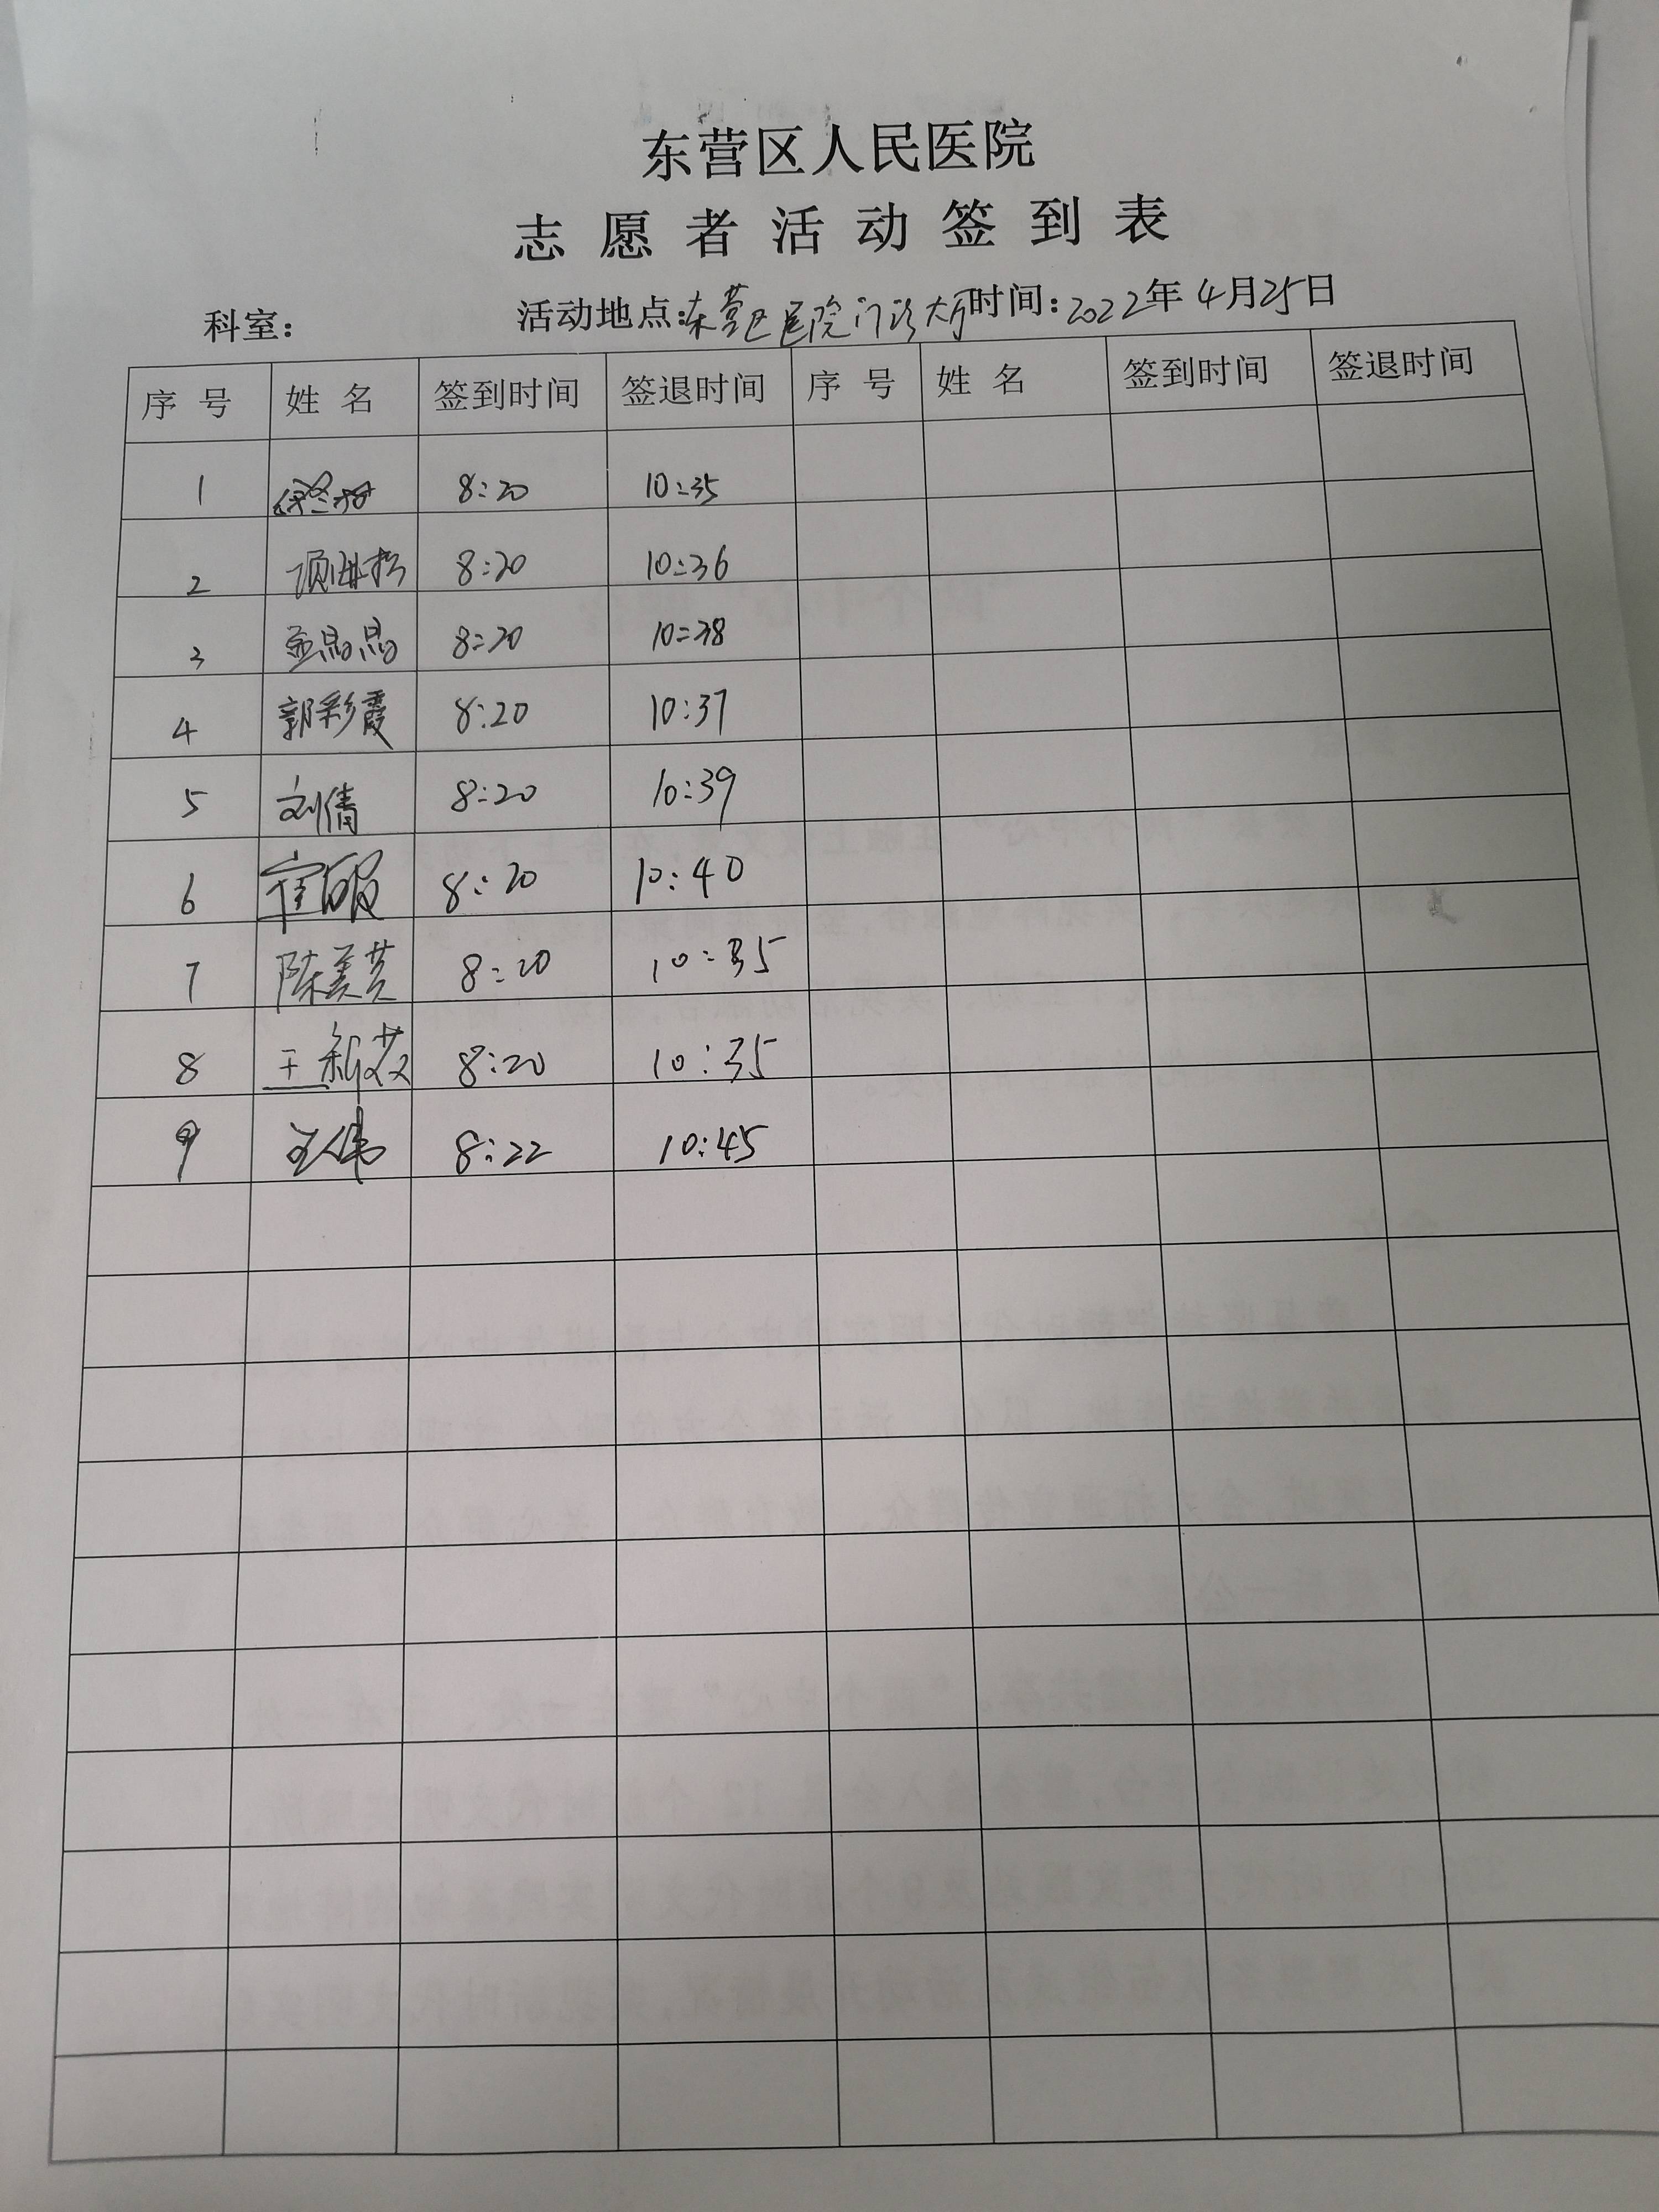 东营区人民医院
志愿者活动签到表
科室： 活动地点：东营区医院门诊大厅 时间：2022年4月25日
序号 姓名 签到时间 签退时间 序号 姓名 签到时间 签退时间
1 8:20 10:35
2 8:20 10:36
3 孟晶晶 8:20 10:38
4 郭彩霞 8:20 10:37
5 刘倩 8:20 10:39
6 8:20 10:40
7 陈美芸 8:20 10:35
8 王新苁 8:20 10:35
9 王伟 8:22 10:45